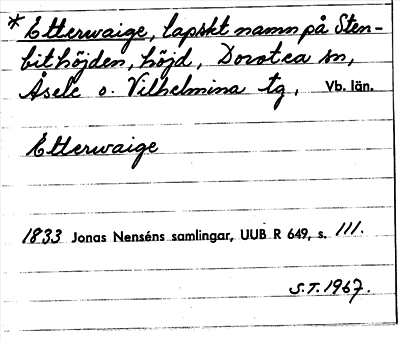 * Etterwaige, lapskt namn på Sten-
bithöjden, höjd, Dorotea sn,
Åsele o. Vilhelmina tg, Vb. län.
Etterwaige
1833 Jonas Nenséns samlingar, UUB R 649, s. 111.
S.T. 1967.